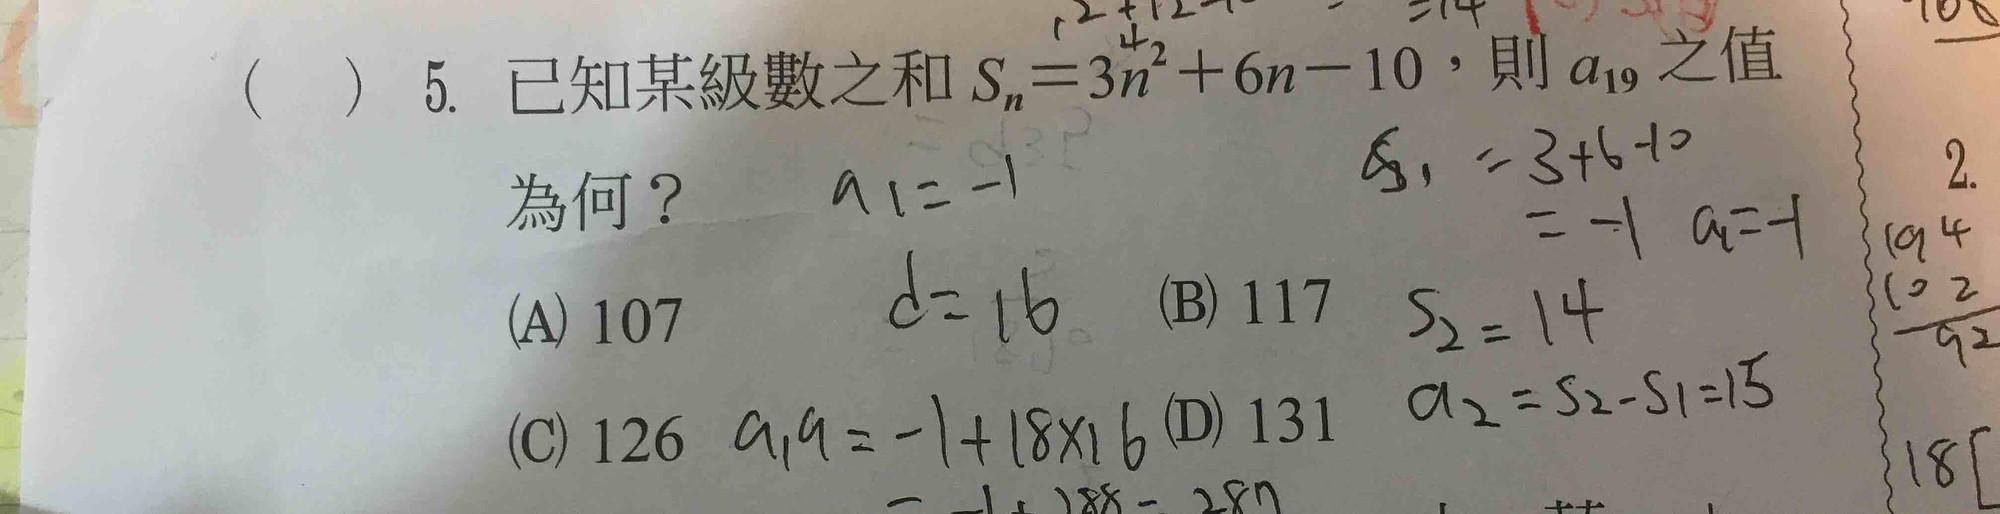 =14
( ) 5. 已知某級數之和 Sₙ=3n²+6n−10，則 a₁₉ 之值
為何？
a₁=-1
S₁=3+6-10
=-1 a₁=-1
(A) 107
d=16
(B) 117
S₂=14
(C) 126
a₁₉=-1+18×16
(D) 131
a₂=S₂-S₁=15
=-1+288=287
2.
194
102
92
18